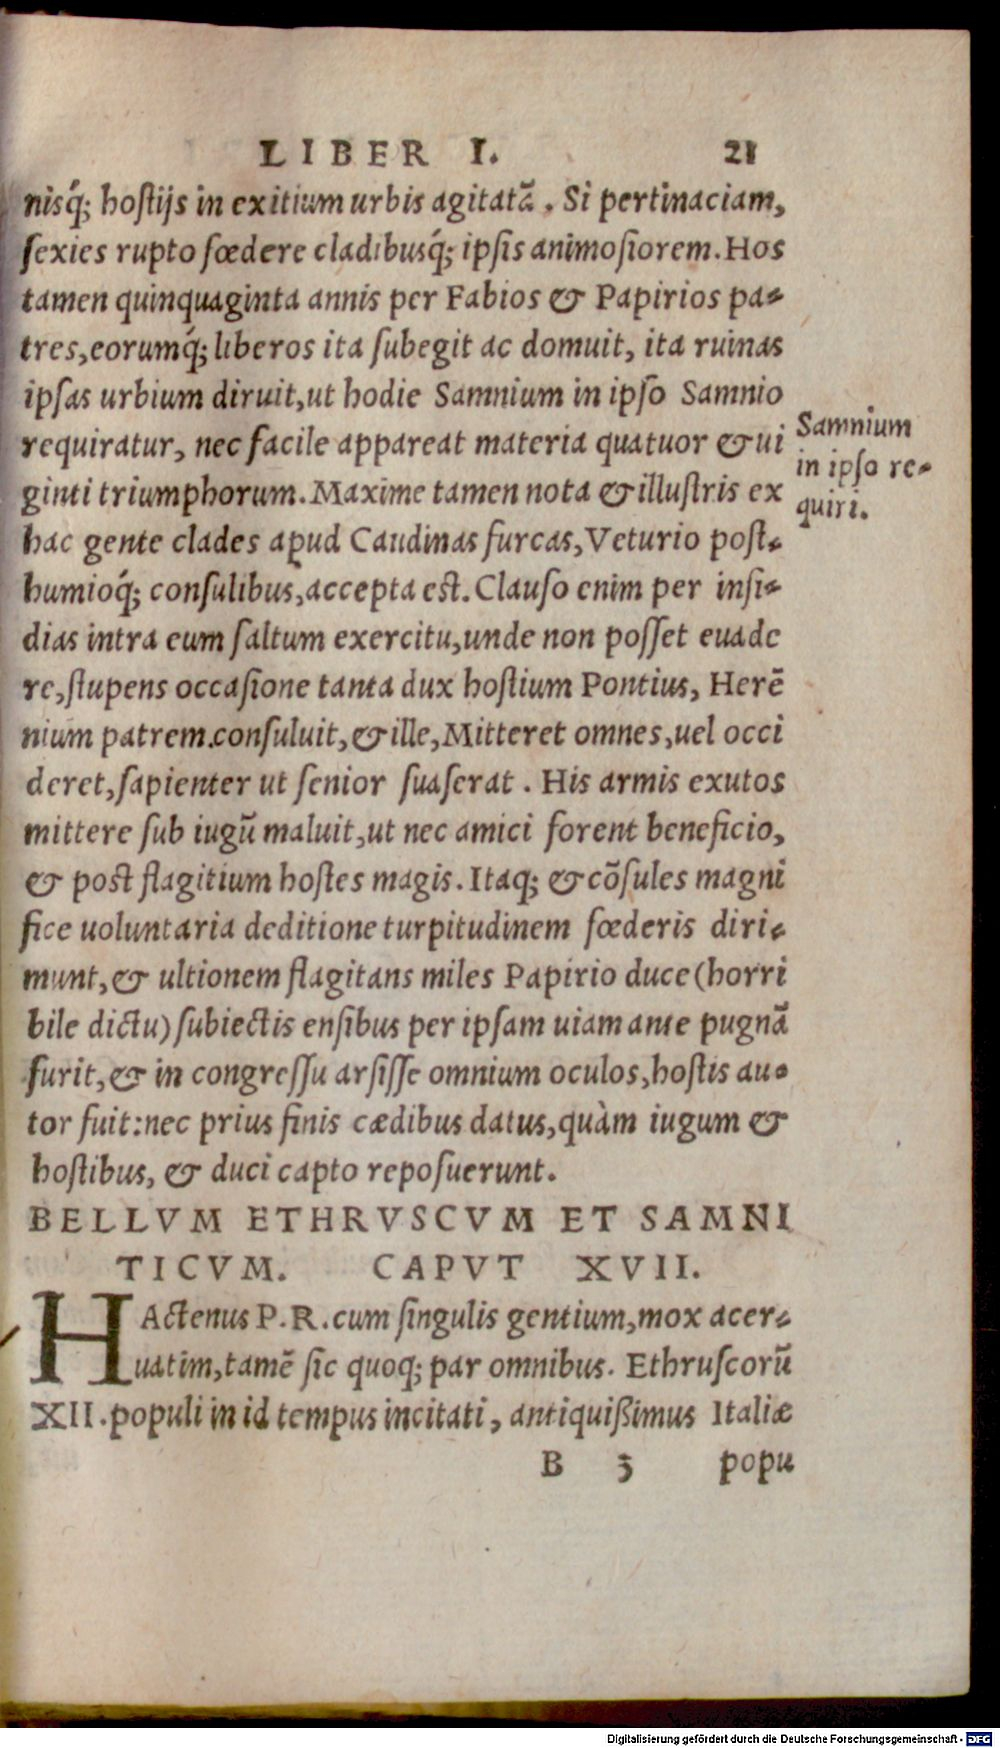 LIBER I. 21
nisq́; hostijs in exitium urbis agitatã. Si pertinaciam,
sexies rupto fœdere cladibusq́; ipsis animosiorem. Hos
tamen quinquaginta annis per Fabios & Papirios pa-
tres, eorumq́; liberos ita subegit ac domuit, ita ruinas
ipsas urbium diruit, ut hodie Samnium in ipso Samnio
requiratur, nec facile appareat materia quatuor & ui
ginti triumphorum. Maxime tamen nota & illustris ex
hac gente clades apud Caudinas furcas, Veturio post-
humioq́; consulibus, accepta est. Clauso enim per insi-
dias intra eum saltum exercitu, unde non posset euade
re, stupens occasione tanta dux hostium Pontius, Herē
nium patrem.consuluit, & ille, Mitteret omnes, uel occi
deret, sapienter ut senior suaserat. His armis exutos
mittere sub iugū maluit, ut nec amici forent beneficio,
& post flagitium hostes magis. Itaq; & cõsules magni
fice uoluntaria deditione turpitudinem fœderis diri-
munt, & ultionem flagitans miles Papirio duce (horri
bile dictu) subiectis ensibus per ipsam uiam ante pugnã
furit, & in congressu arsisse omnium oculos, hostis au-
tor fuit: nec prius finis cædibus datus, quàm iugum &
hostibus, & duci capto reposuerunt.
Samnium
in ipso re-
quiri.
BELLVM ETHRVSCVM ET SAMNI
TICVM. CAPVT XVII.
HActenus P. R. cum singulis gentium, mox acer-
uatim, tamē sic quoq; par omnibus. Ethruscorū
XII. populi in id tempus incitati, antiquißimus Italiæ
B 3 popu
Digitalisierung gefördert durch die Deutsche Forschungsgemeinschaft - DFG